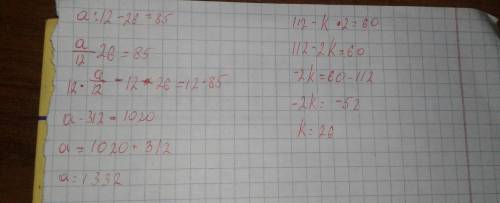 a:12-26=85
a/12-26=85
12·a/12-12·26=12·85
a-312=1020
a=1020+312
a=1332
112-k·2=60
112-2k=60
-2k=60-112
-2k=-52
k=26